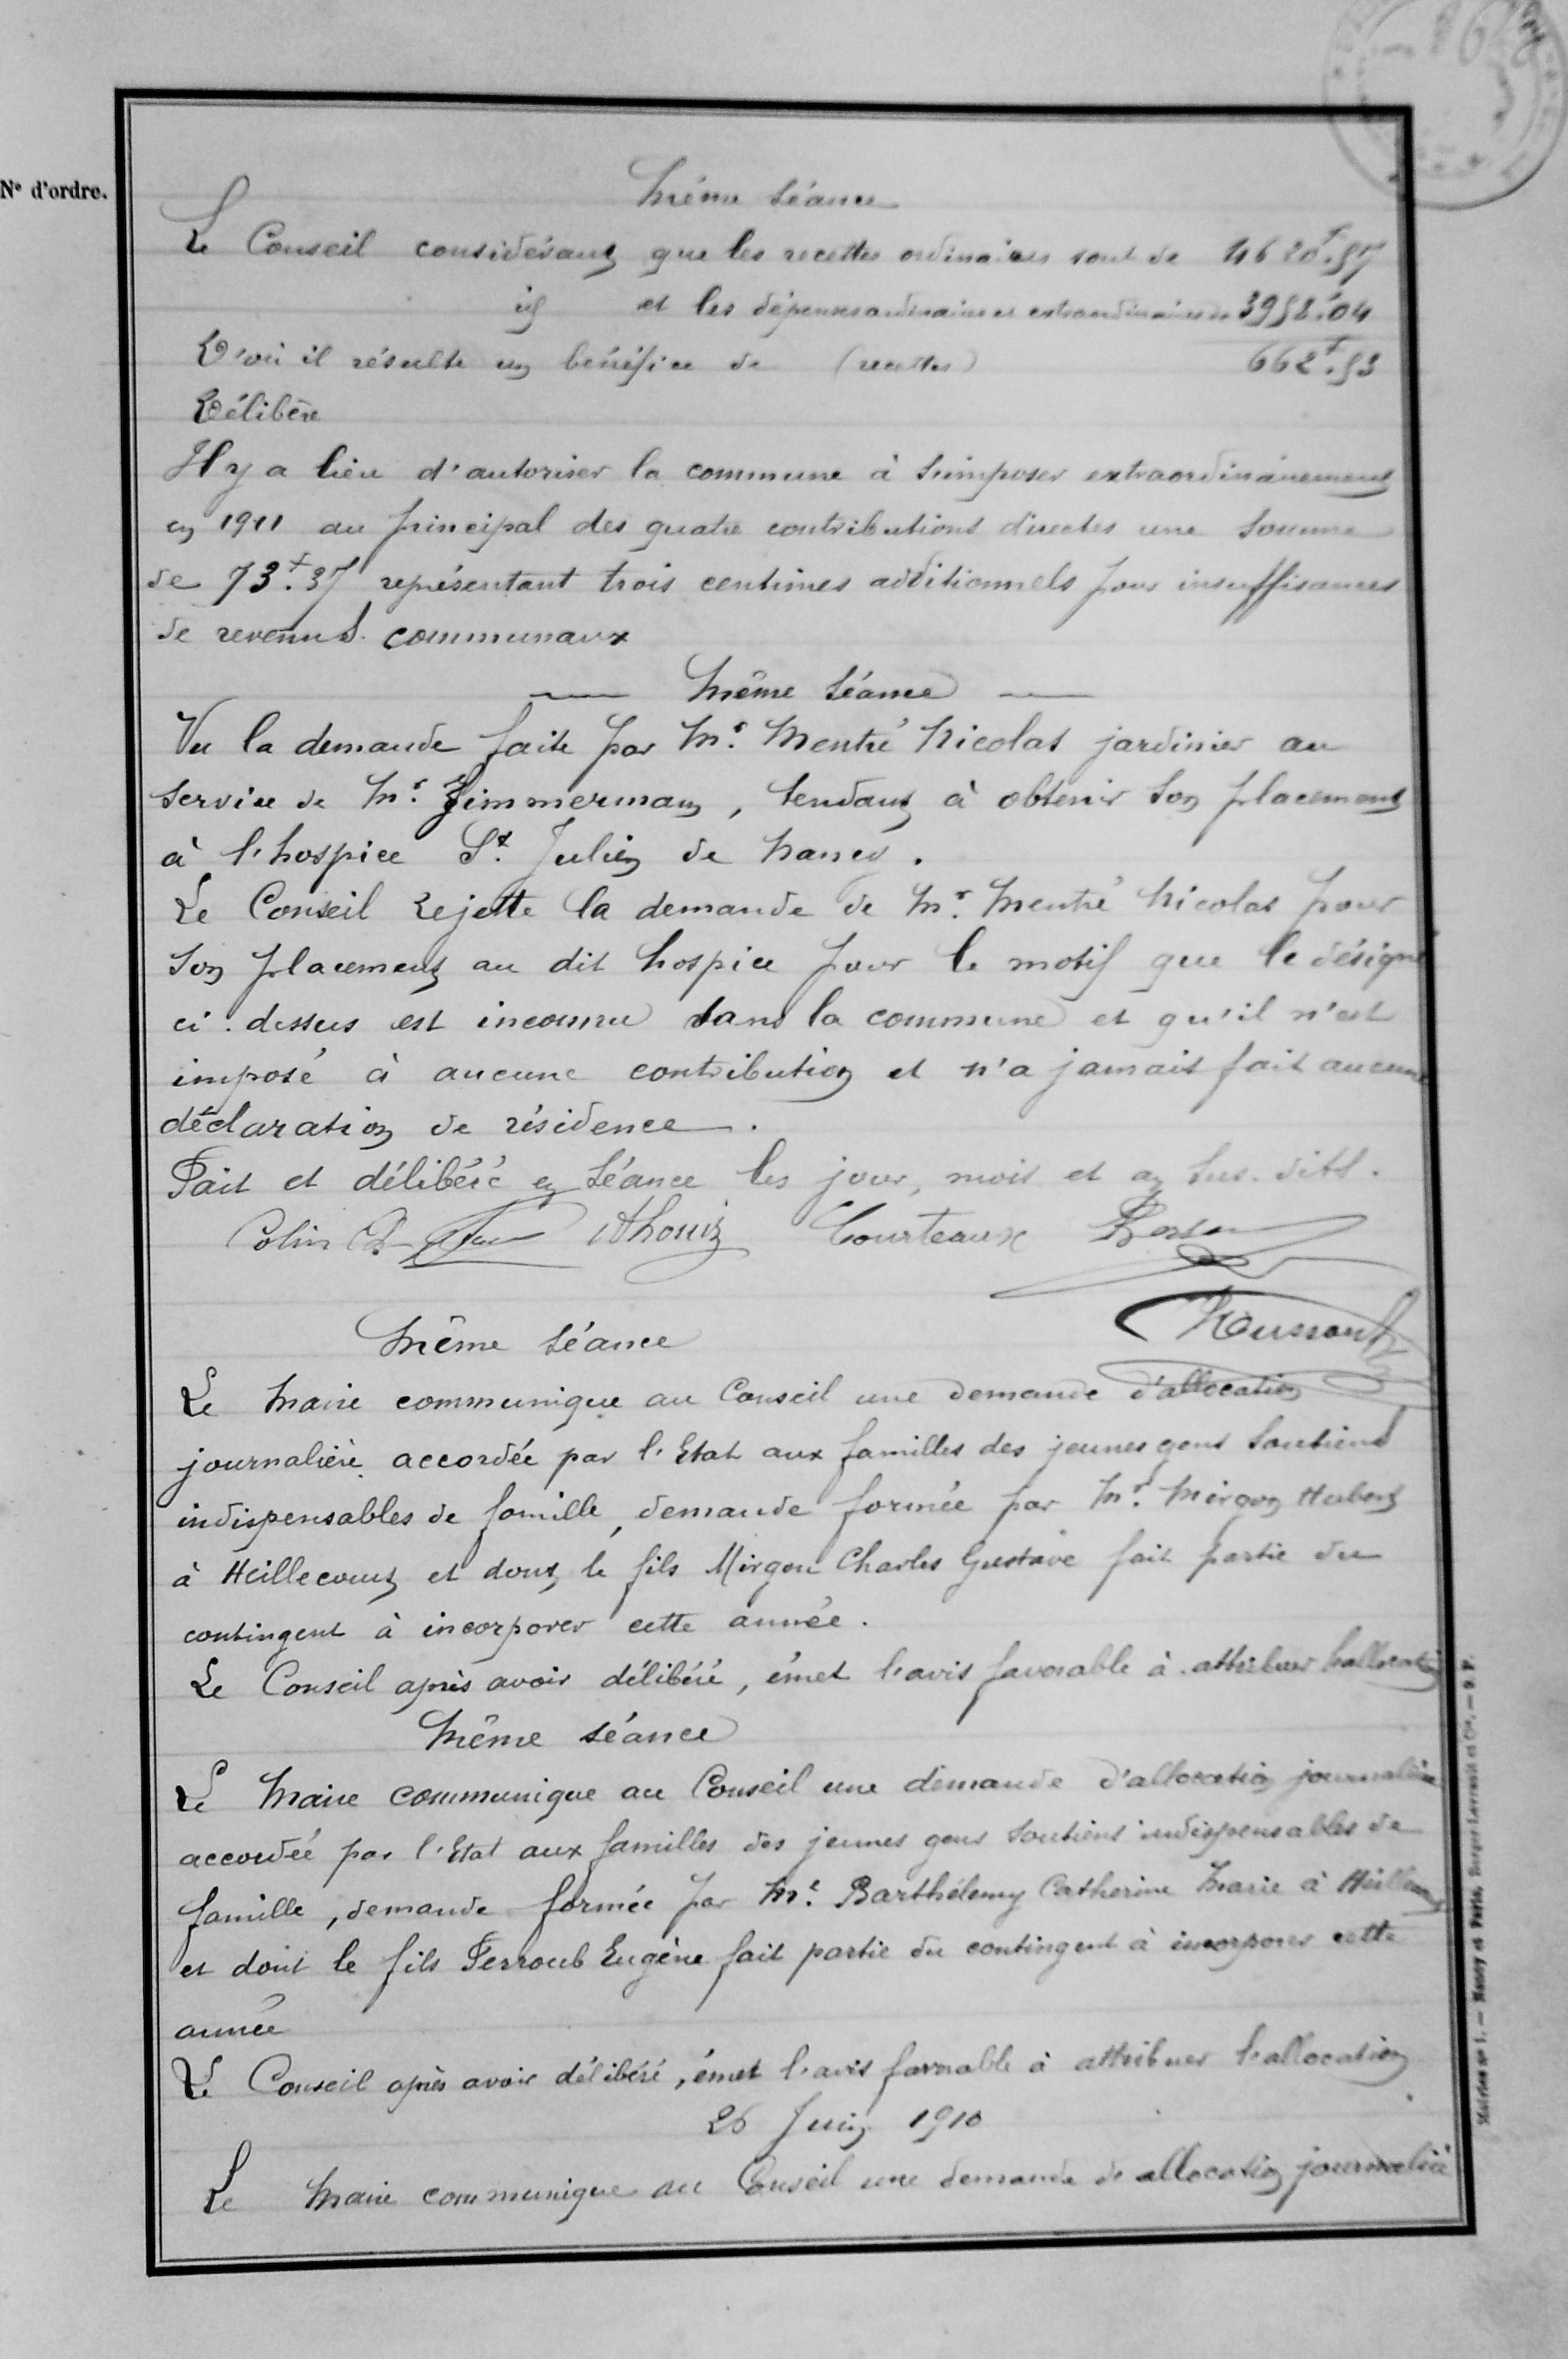 N° d'ordre.
Même Séance
Le Conseil considérant que les recettes ordinaires sont de 4620f.57
id et les dépenses ordinaires et extraordinaires de 3958f.04
D'où il résulte un bénéfice de (recettes) 662f.53
Délibère
Il y a lieu d'autoriser la commune à s'imposer extraordinairement
en 1911 au principal des quatre contributions directes une somme
de 73f.37 représentant trois centimes additionnels pour insuffisances
de revenus communaux
Même Séance
Vu la demande faite par Mr. Mentré Nicolas jardinier au
service de Mr. Zimmermann, tendant à obtenir son placement
à l'hospice St. Julien de Nancy.
Le Conseil Rejette la demande de Mr. Mentré Nicolas pour
son placement au dit hospice pour le motif que le désigné
ci-dessus est inconnu dans la commune et qu'il n'est
imposé à aucune contribution et n'a jamais fait aucune
déclaration de résidence.
Fait et délibéré en Séance les jour, mois et an sus-dits.
Colin Courteaux
Même Séance
Le Maire communique au Conseil une demande d'allocation
journalière accordée par l'Etat aux familles des jeunes gens soutiens
indispensables de famille, demande formée par Mr. Mirgon Hubert
à Heillecourt et dont le fils Mirgon Charles Gustave fait partie du
contingent à incorporer cette année.
Le Conseil après avoir délibéré, émet l'avis favorable à attribuer l'allocation
Même séance
Le Maire communique au Conseil une demande d'allocation journalière
accordée par l'Etat aux familles des jeunes gens soutiens indispensables de
famille, demande formée par Me. Barthélemy Catherine Marie à Heillecourt
et dont le fils Ferroub Eugène fait partie du contingent à incorporer cette
année
Le Conseil après avoir délibéré, émet l'avis favorable à attribuer l'allocation
26 Juin 1910
Le Maire communique au Conseil une demande de allocation journalière
Mairies n° 1. — Nancy et Paris, Berger-Levrault et Cie. —